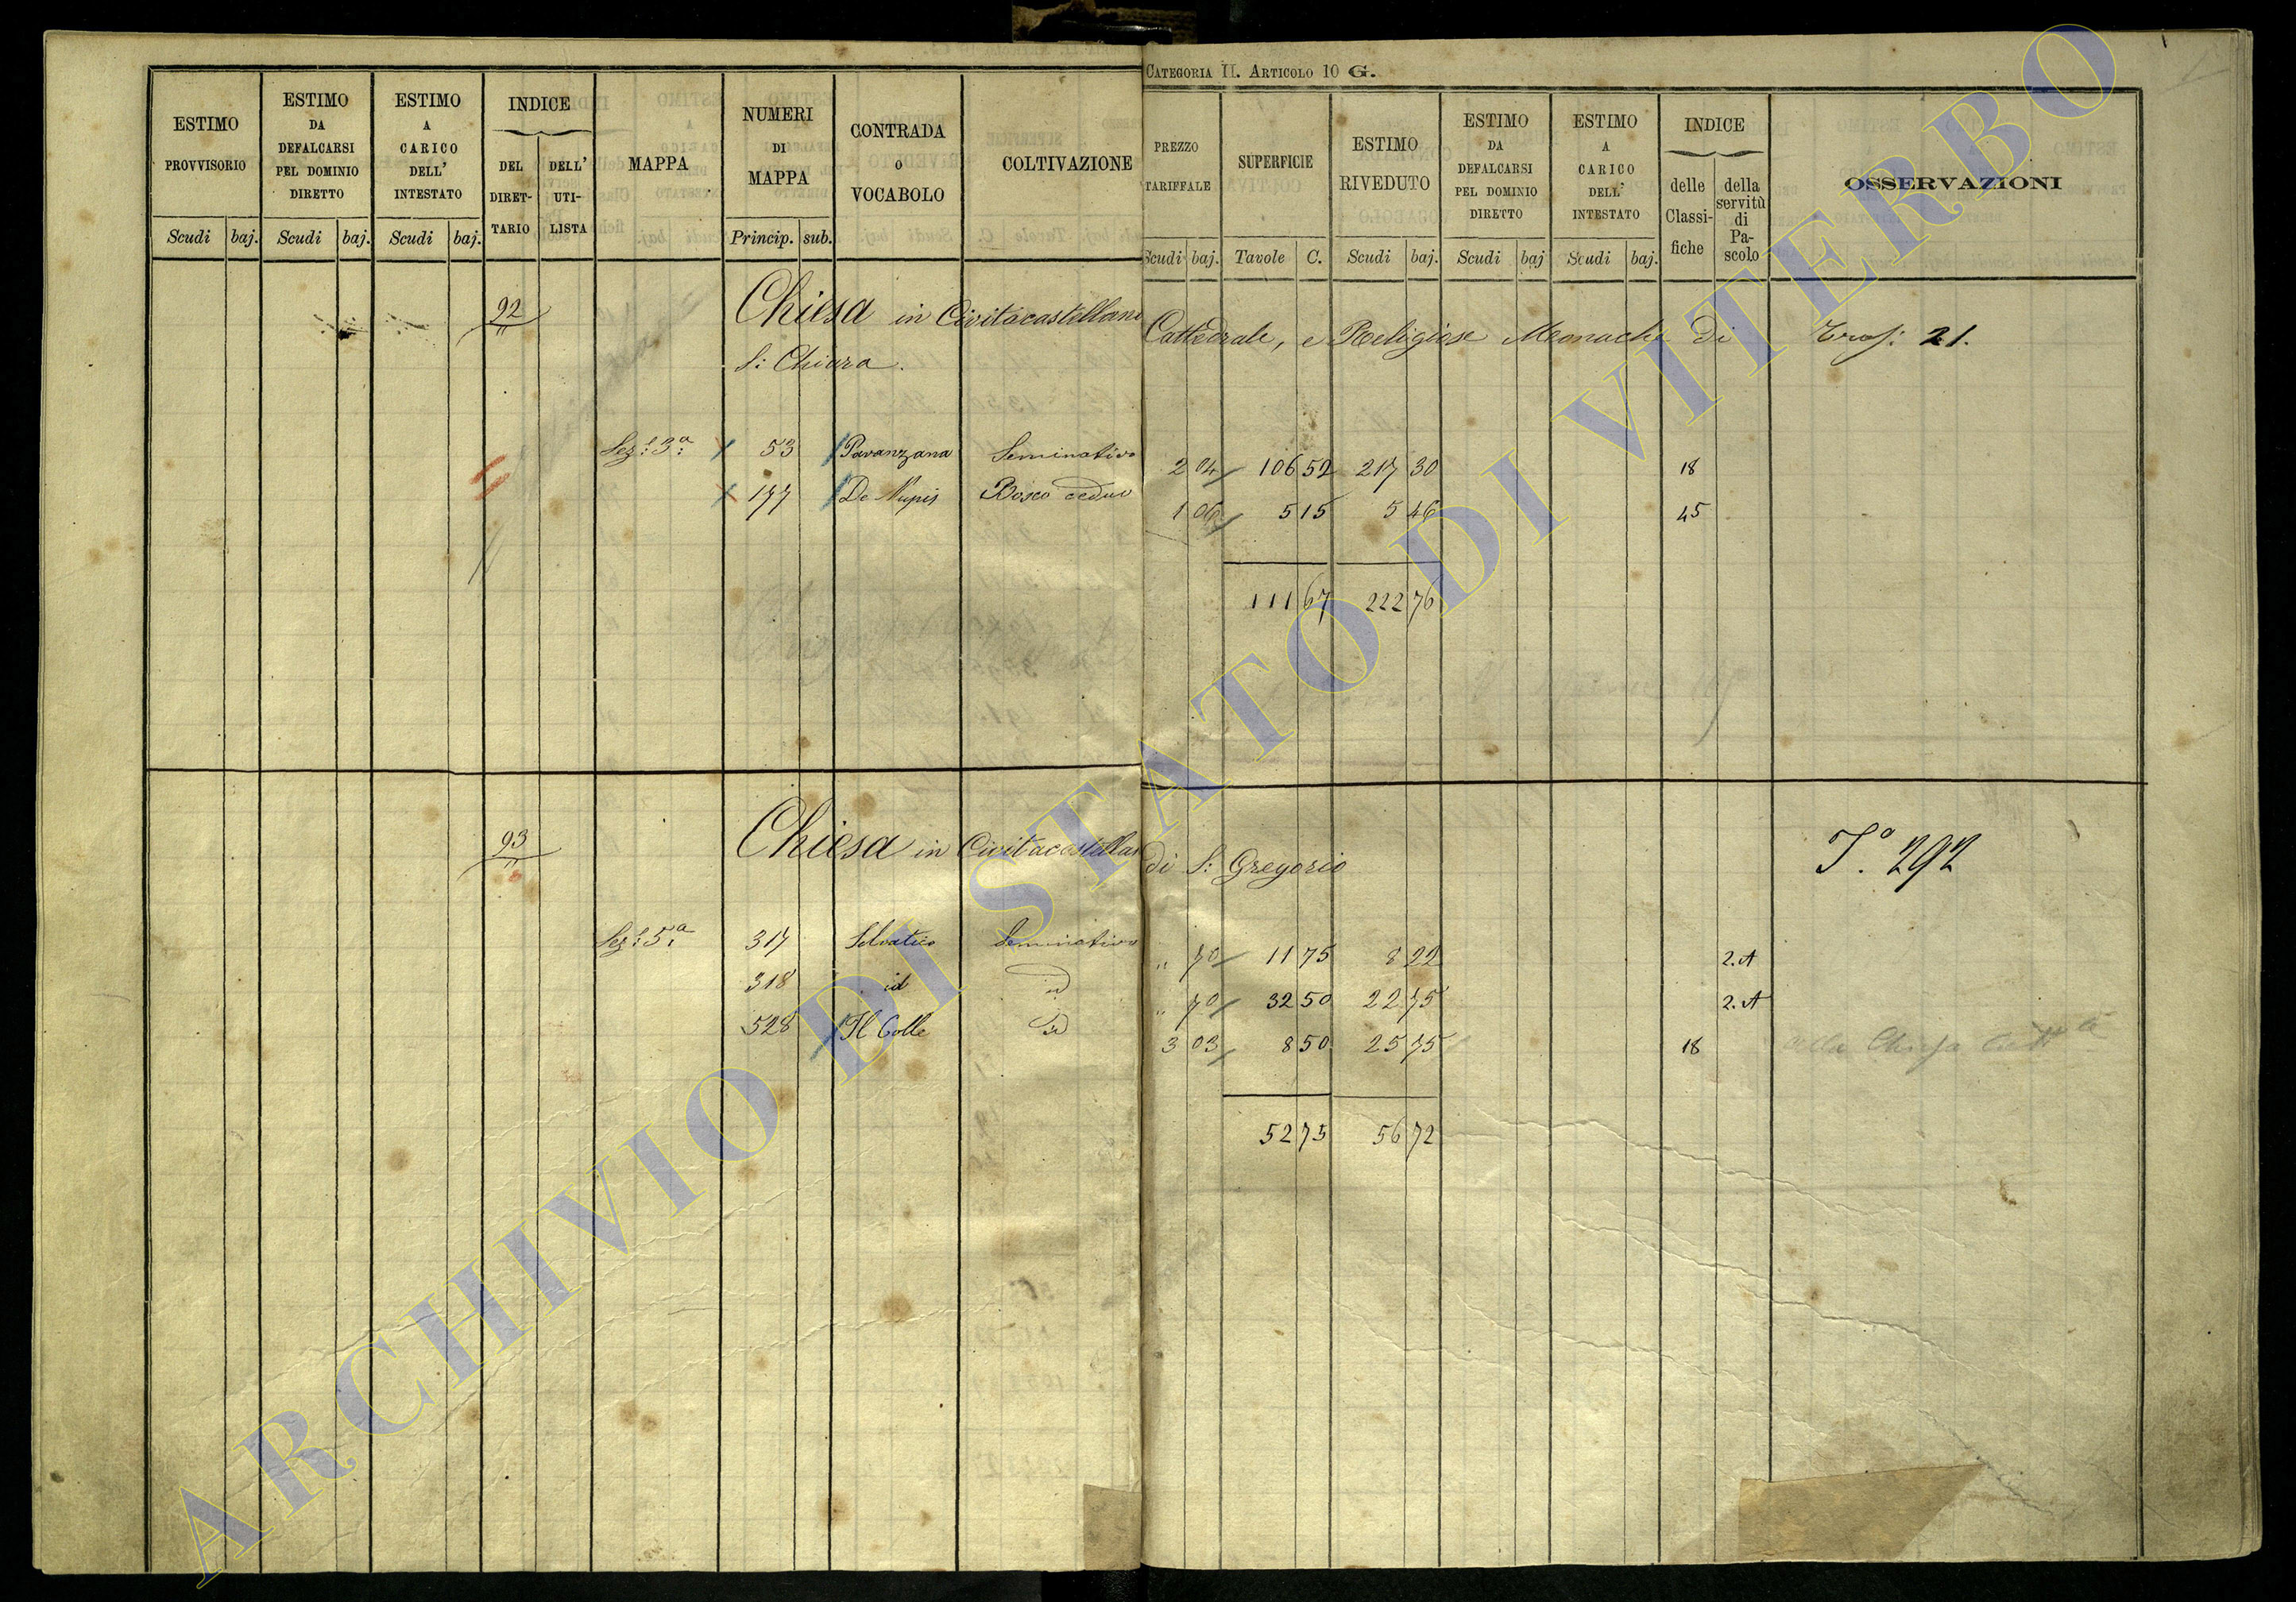 CATEGORIA II. ARTICOLO 10 G.
ESTIMO PROVVISORIO
ESTIMO DA DEFALCARSI PEL DOMINIO DIRETTO
ESTIMO A CARICO DELL' INTESTATO
INDICE
DEL DIRET-TARIO
DELL' UTI-LISTA
MAPPA
NUMERI DI MAPPA
CONTRADA o VOCABOLO
COLTIVAZIONE
PREZZO TARIFFALE
SUPERFICIE
ESTIMO RIVEDUTO
ESTIMO DA DEFALCARSI PEL DOMINIO DIRETTO
ESTIMO A CARICO DELL' INTESTATO
INDICE
delle Classi-fiche
della servitù di Pa-scolo
OSSERVAZIONI
Scudi baj. Scudi baj. Scudi baj. Princip. sub.
Scudi baj. Tavole C. Scudi baj. Scudi baj Scudi baj.
92 Chiesa in Civitacastellana Cattedrale, e Religiose Monache di
S: Chiara.
21.
Sez: 3a 53 Pavanzana Seminativo 2 04 106 52 217 30 18
177 De Nupis Bosco ceduo 1 06 5 15 5 46 45
111 67 222 76
93 Chiesa in Civitacastellana di S: Gregorio
To. 292
Sez: 5a 317 Selvatico Seminativo " 70 11 75 8 22 2.A
318 id id " 70 32 50 22 75 2.A
528 Il Colle id 3 03 8 50 25 75 18
52 75 56 72
ARCHIVIO DI STATO DI VITERBO